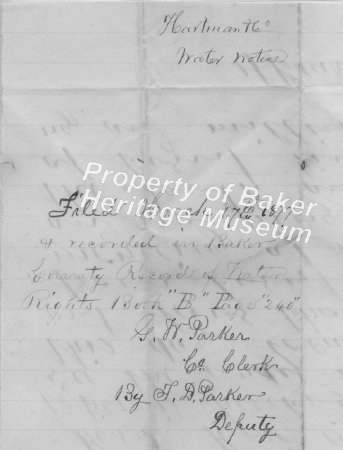 Hartman & Co
Water Notice
Property of Baker
Heritage Museum
Filed March 17th 1877
& recorded in Baker
County Record of Water
Rights Book "B" Page "240"
G. W. Parker
Co Clerk
By F. D. Parker
Deputy